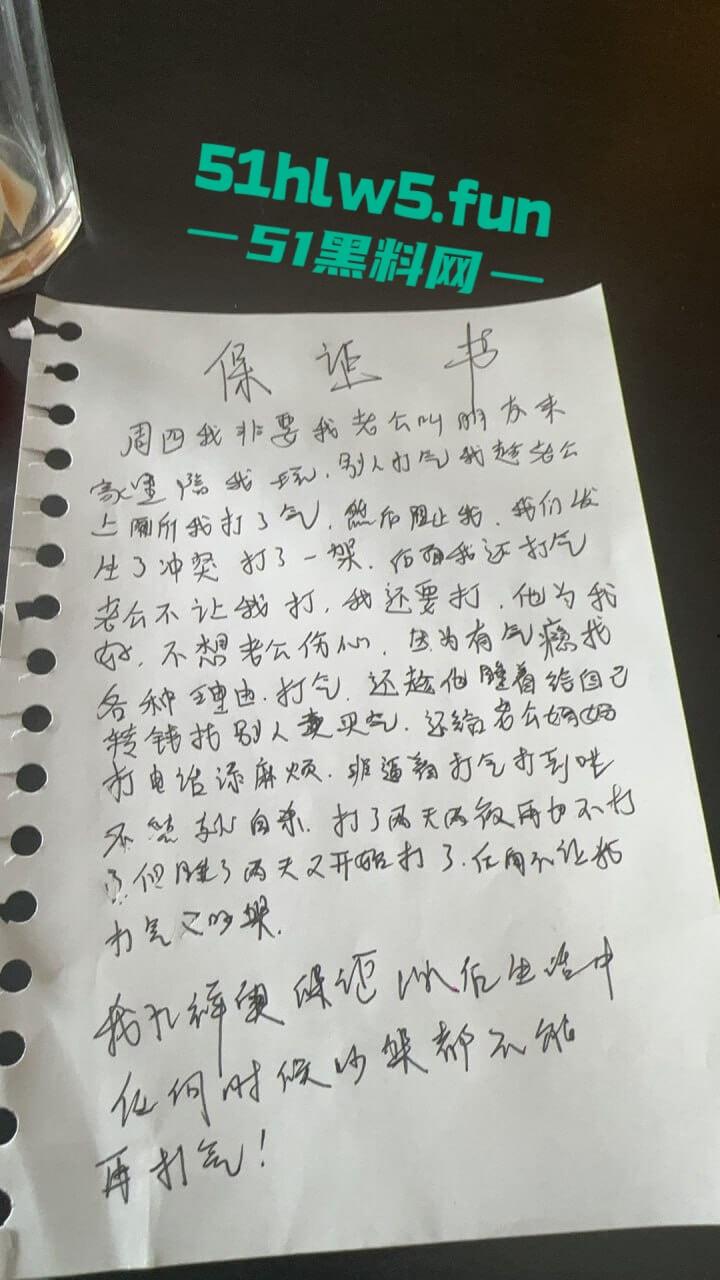 51hlw5.fun
51黑料网
保证书
周四我非要我老公叫朋友来
家里陪我玩,别人打气我趁老公
上厕所我打了气,然后阻止我,我们发
生了冲突 打了一架,后面我还打气
老公不让我打,我还要打,他为我
好,不想老公伤心,因为有气瘾找
各种理由,打气,还趁他睡着给自己
转钱找别人卖买气,还给老公妈妈
打电话添麻烦,非逼着打气打到
就自杀,打了两天两夜再也不打
了但睡了两天又开始打了,不让我
打气又吵架,
我 保证以后生活中
任何时候吵架都不能
再打气!